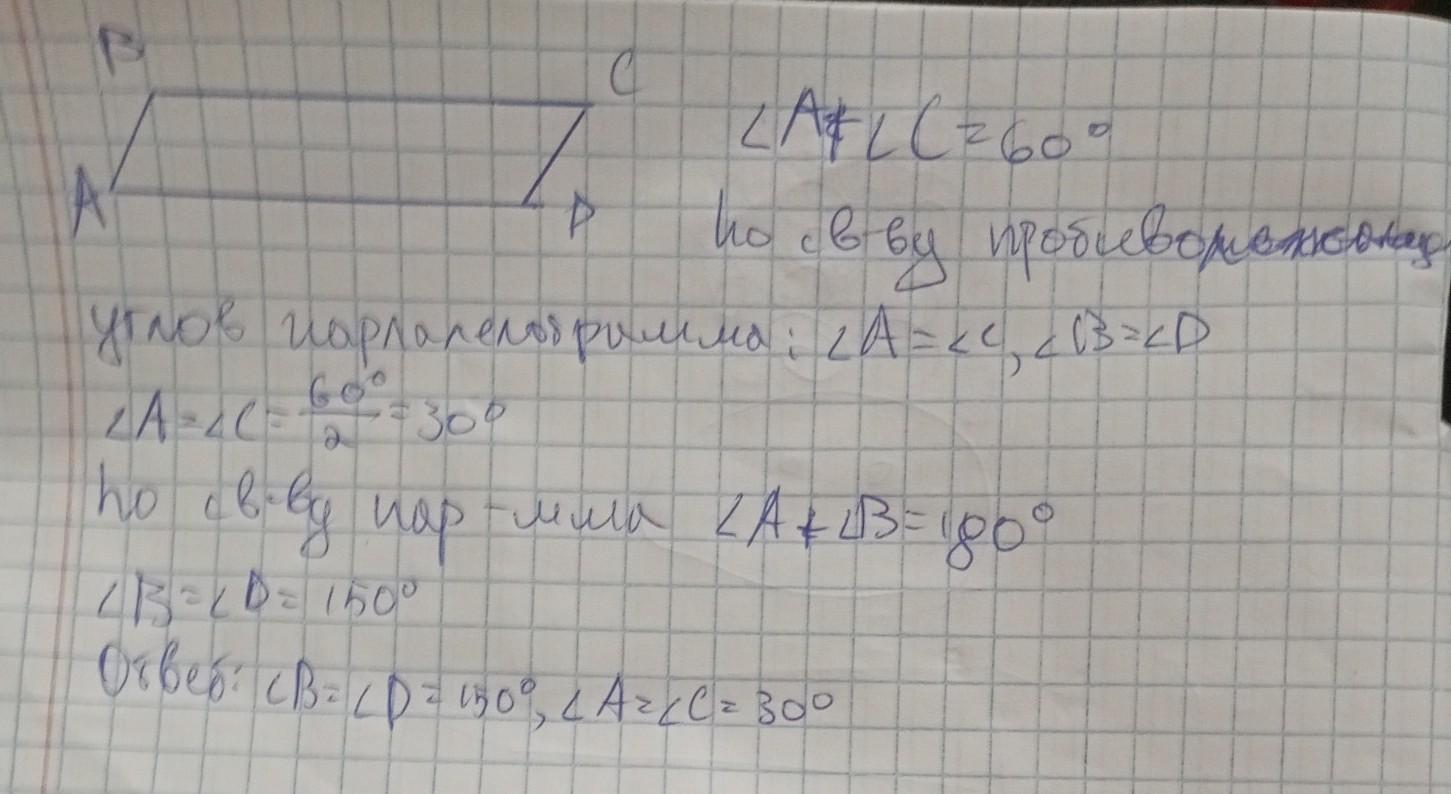 B
C
A
D
∠A+∠C=60°
по св-ву
углов парлалелограмма: ∠A=∠C, ∠B=∠D
∠A=∠C=60°/2=30°
по св-ву пар-мма ∠A+∠B=180°
∠B=∠D=150°
Ответ: ∠B=∠D=150°, ∠A=∠C=30°